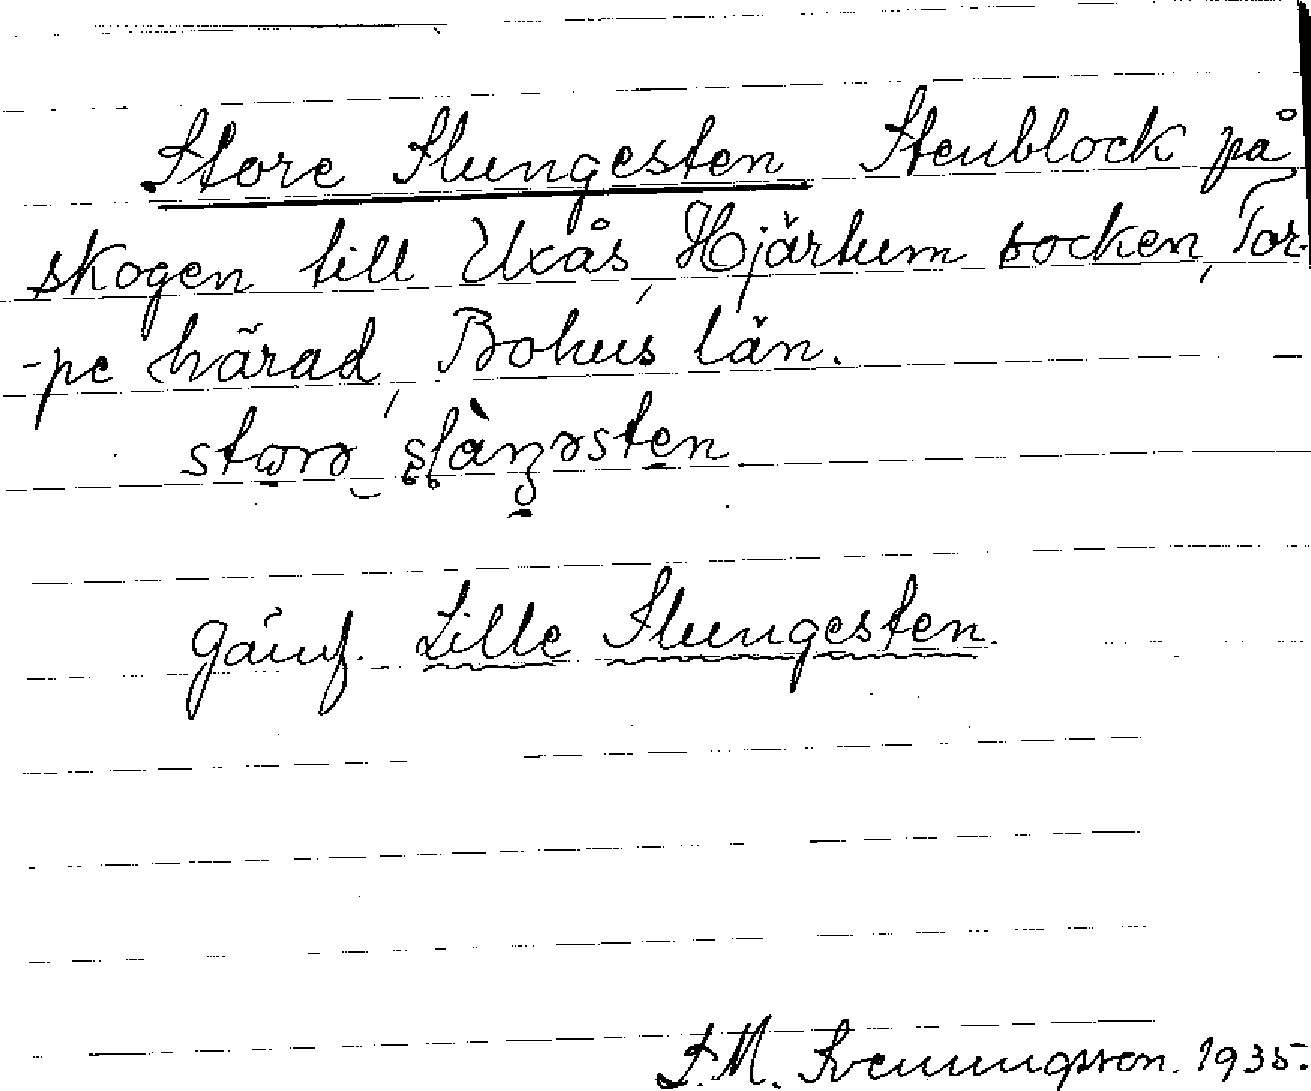 Store Slungesten Stenblock på
skogen till Uxås, Hjärtum socken, Tor-
-pe härad, Bohus län.
Jämf. Lille Slungesten.
S.M. Svenungsson. 1935.